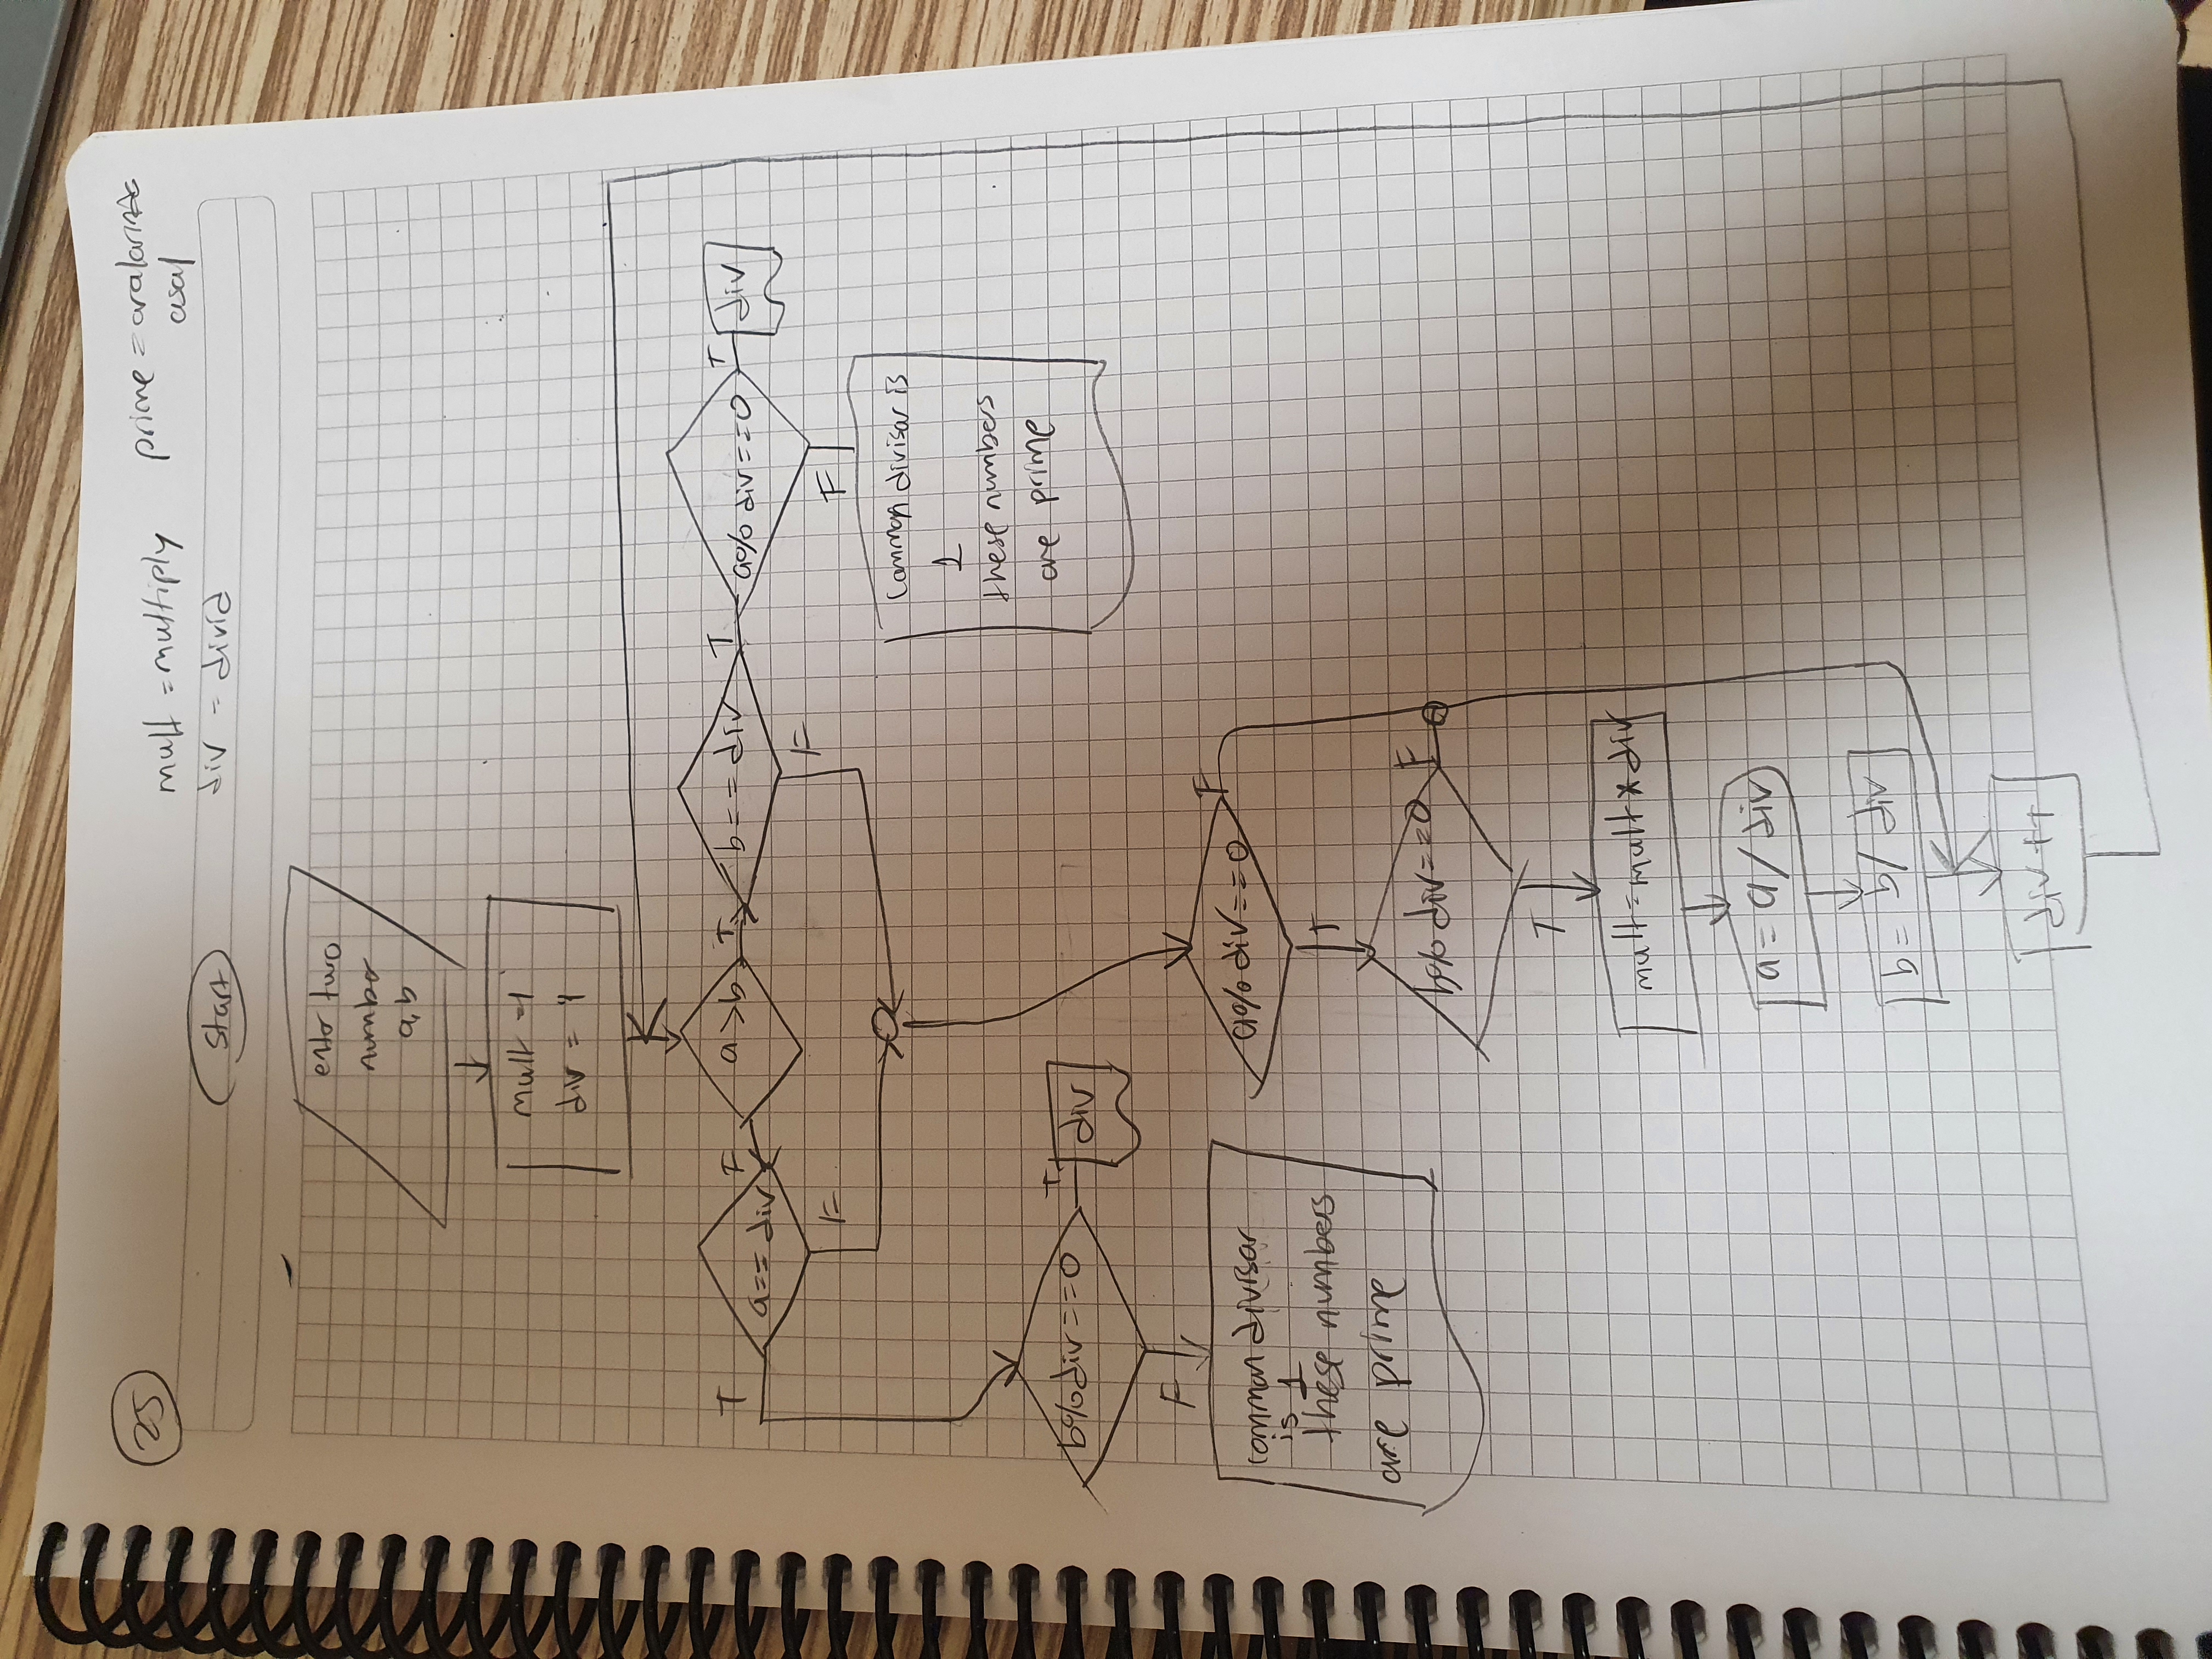 25
mult = multiply
div = divid
prime = aralarında
asal
start
enter two
number
a, b
mult = 1
div = 1
a > b
T
F
b == div
T
F
a% div == 0
T
div
F
common divisor is
1
these numbers
are prime
a == div
T
F
b% div == 0
T
div
F
common divisor
is 1
these numbers
are prime
a% div == 0
F
T
b% div == 0
F
T
mult = mult * div
a = a / div
b = b / div
div ++